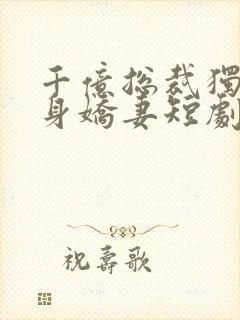 千億总裁獨
身嬌妻短劇
祝壽歌